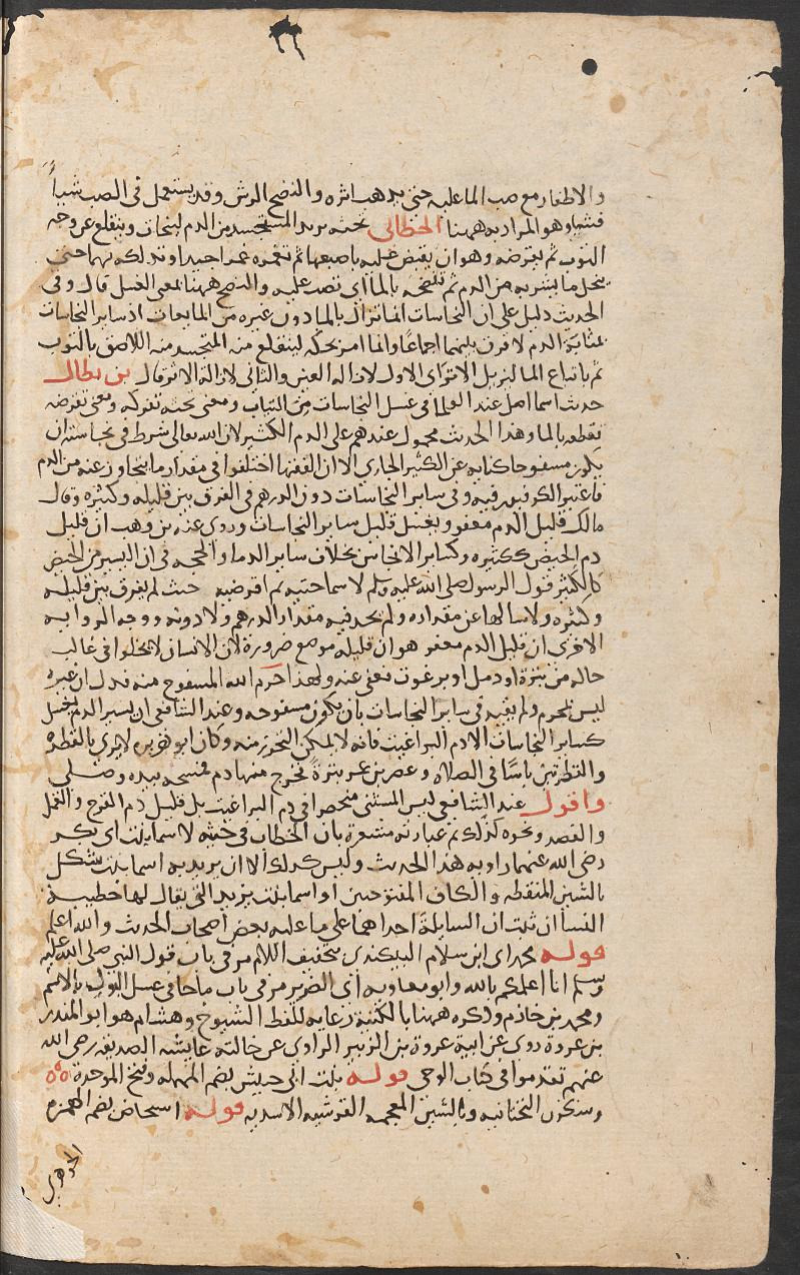 والاطفار مع صب الما عليه حتي يذهب اثره والنضح الرش وقد يستعمل في الصب شيأ
فشيا وهو المراد به ههنا الخطابي تحته يريد المستجسد من الدم ليتحات وينقلع عن وجه
الثوب ثم تقرضه وهو ان يقبض عليه باصبعها ثم تغمزه غمزا جيدا وتدلكه بهما حتي
ينحل ما يتشربه من الدم ثم تنضحه بالما اي تصب عليه والنضح ههنا بمعني الغسل قال وفي
الحديث دليل علي ان النجاسات انما تزال بالما دون غيره من المايعات اذ ساير النجاسات
بمثابة الدم لا فرق بينهما اجماعا وانما امر بحكه لينقلع منه المتجسد منه اللاصق بالثوب
ثم باتباع الما ليزيل الاثر اي الاول لازاله العين والثاني لازالة الاثر قال بن بطال
حديث اسما اصل عند العلما في غسل النجاسات من الثياب ومعني تحته تفركه ومعني تقرضه
تقطعه بالما وهذا الحديث محمول عندهم علي الدم الكثير لان الله تعالي شرط في نجاسته ان
يكون مسفوحا كنايه عن الكثير الجاري الا ان الفقها اختلفوا في مقدار ما يتجاوز عنه من الدم
فاعتبر الكوفيون فيه وفي ساير النجاسات دون الدرهم في الفرق بين قليله وكثيره وقال
مالك قليل الدم معفو ويغسل قليل ساير النجاسات وروي عنه بن وهب ان قليل
دم الحيض ككثيره وكساير الانجاس بخلاف ساير الدما والحجه في ان اليسير من الحيض
كالكثير قول الرسول صلي الله عليه وسلم لاسما حتيه ثم اقرضيه حيث لم يفرق بين قليله
وكثيره ولا سالها عن مقداره ولم يحد فيه مقدار الدرهم ولا دونه ووجه الروايه
الاخري ان قليل الدم معفو هو ان قليله موضع ضرورة لان الانسان لا يخلوا في غالب
حاله من بثرة او دمل او برغوث فعفي عنه ولهذا حرم الله المسفوح منه فدل ان غيره
ليس بمحرم ولم يقيد في ساير النجاسات بان يكون مسفوحه وعند الشافعي ان يسير الدم يغسل
كساير النجاسات الا دم البراغيث فانه لا يمكن التحرز منه وكان ابو هريره لا يري بالقطره
والقطرتين باسًا في الصلاه وعصر بن عمر بثرةً فخرج منها دم فمسحه بيده وصلي
واقول عند الشافعي ليس المستثني منحصرا في دم البراغيث بل قليل دم القرح والقمل
والفصد ونحوه كذلك ثم عبارته مشعرة بان الخطاب في حتيه لاسما بنت ابي بكر
رضي الله عنهما راويه هذا الحديث وليس كذلك الا ان يريد به اسما بنت شكل
بالشين المنقطه والكاف المفتوحتين او اسما بنت يزيد التي يقال لها خطيبة
النسا ان ثبت ان السايلة احداهما علي ما عليه بعض اصحاب الحديث والله اعلم
قوله محمد اي ابن سلام البيكندي بتخفيف اللام مر في باب قول النبي صلي الله عليه
وسلم انا اعلمكم بالله وابو معاويه اي الضرير مر في باب ما جا في غسل البول بالاسم
ومحمد بن خازم وذكره ههنا بالكنية رعايه للفظ الشيوخ وهشام هو ابو المنذر
بن عروة روي عن ابية عروة بن الزبير الراوي عن خالته عايشه الصديقه رضي الله
عنهم تقدموا في كتاب الوحي قوله بنت ابي حبيش بضم المهمله وفتح الموحدة
وسكون التحتانيه وبالشين المعجمه القرشيه الاسديه قوله استحاض بضم الهمزه
الجوهري